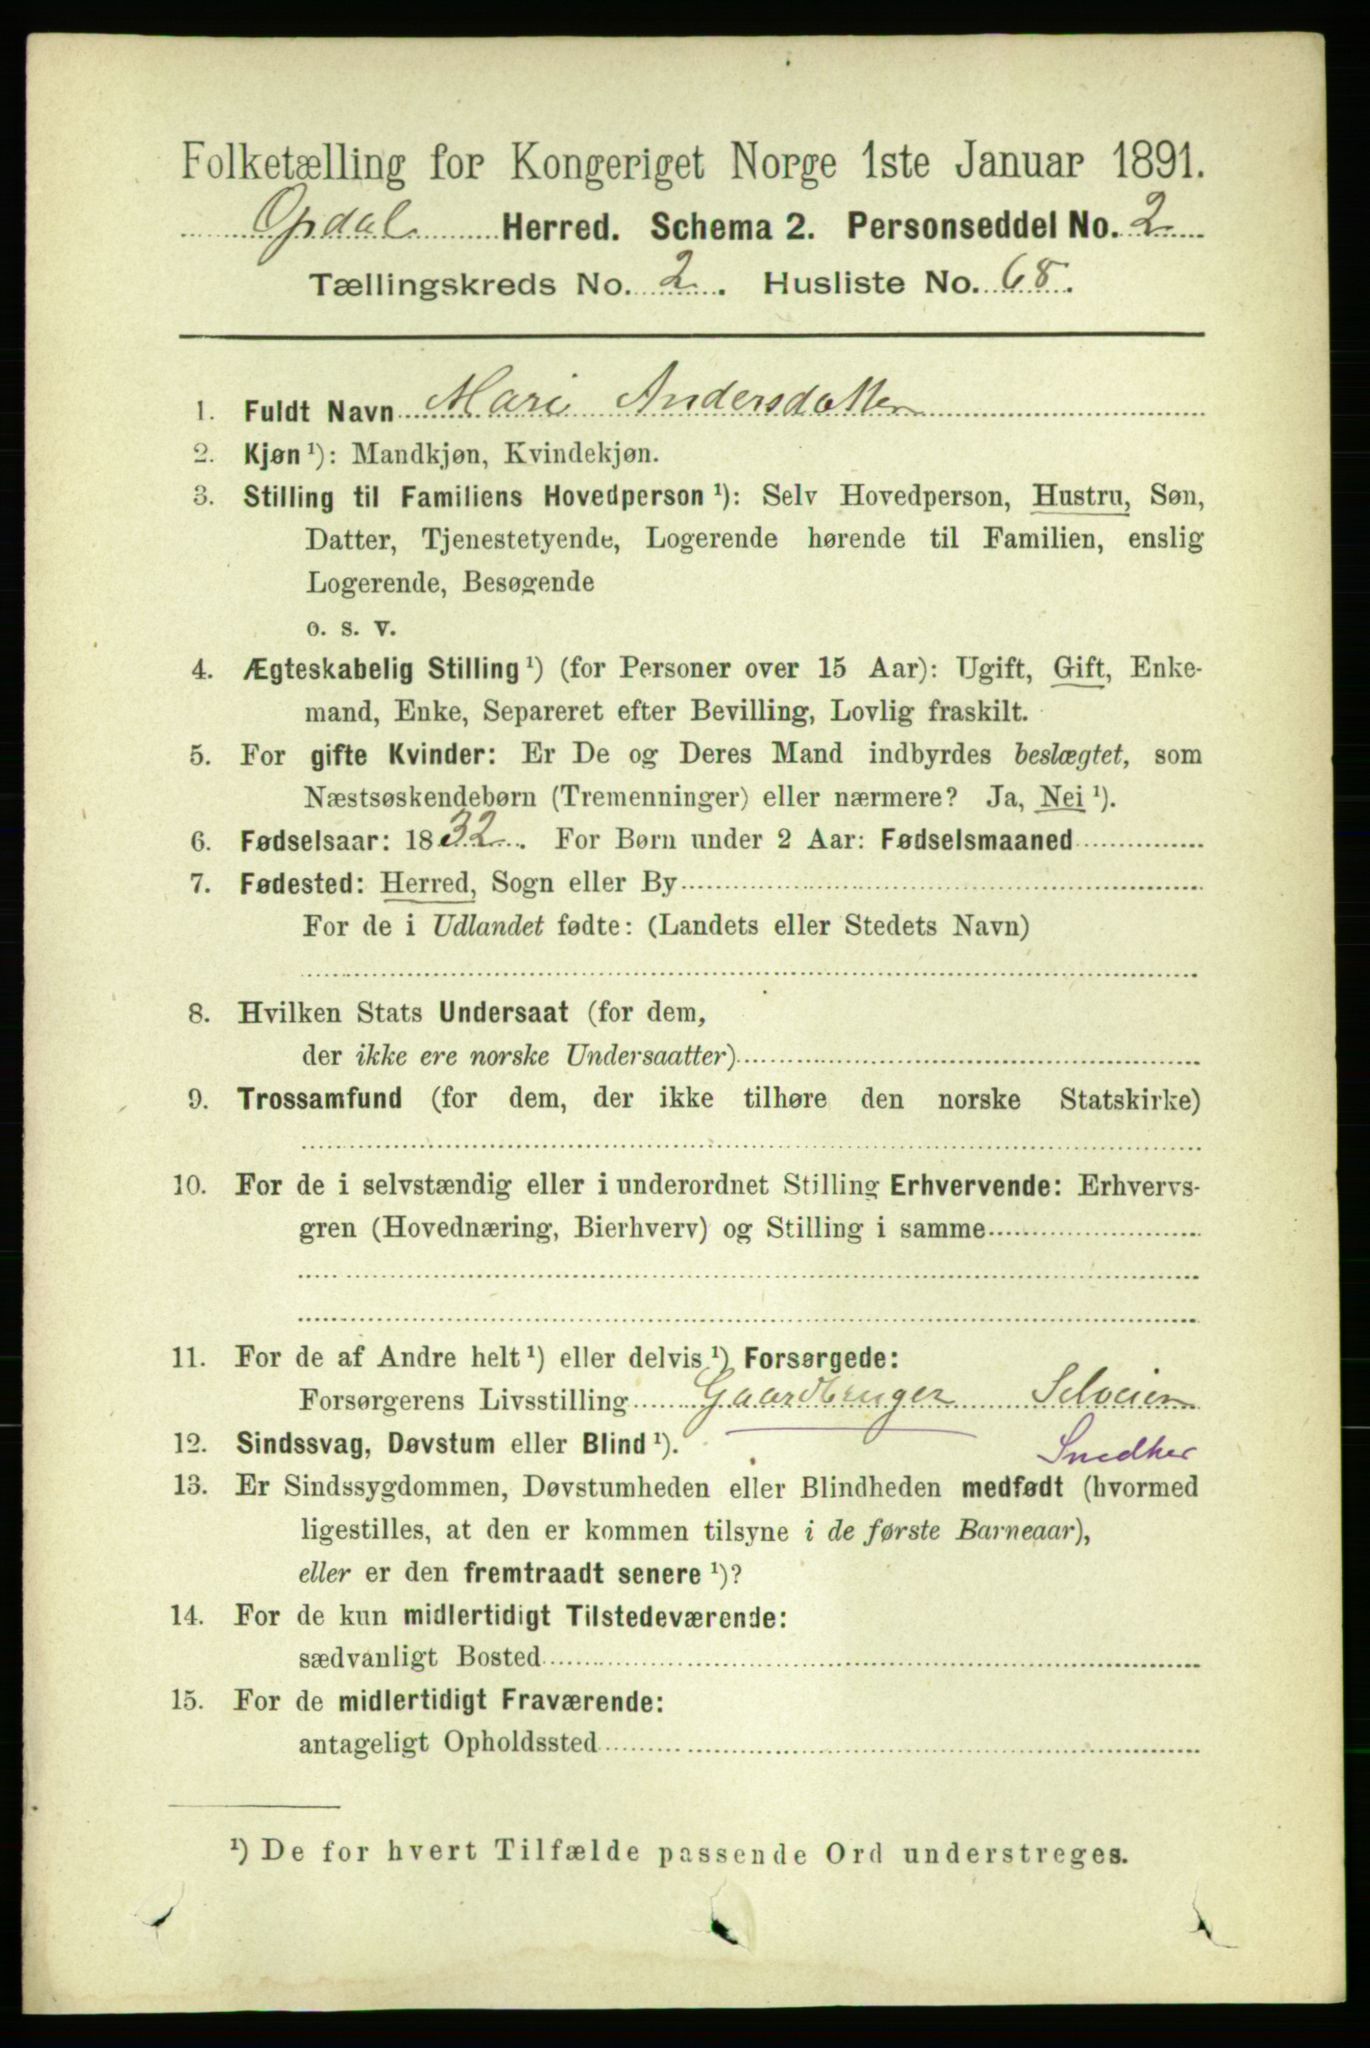 Folketælling for Kongeriget Norge 1ste Januar 1891.
Opdal Herred. Schema 2. Personseddel No. 2
Tællingskreds No. 2. Husliste No. 68.
1. Fuldt Navn Mari Andersdatter
2. Kjøn ¹): Mandkjøn, Kvindekjøn.
3. Stilling til Familiens Hovedperson ¹): Selv Hovedperson, Hustru, Søn,
Datter, Tjenestetyende, Logerende hørende til Familien, enslig
Logerende, Besøgende
o. s. v.
4. Ægteskabelig Stilling ¹) (for Personer over 15 Aar): Ugift, Gift, Enke-
mand, Enke, Separeret efter Bevilling, Lovlig fraskilt.
5. For gifte Kvinder: Er De og Deres Mand indbyrdes beslægtet, som
Næstsøskendebørn (Tremenninger) eller nærmere? Ja, Nei ¹).
6. Fødselsaar: 1832. For Børn under 2 Aar: Fødselsmaaned
7. Fødested: Herred, Sogn eller By
For de i Udlandet fødte: (Landets eller Stedets Navn)
8. Hvilken Stats Undersaat (for dem,
der ikke ere norske Undersaatter)
9. Trossamfund (for dem, der ikke tilhøre den norske Statskirke)
10. For de i selvstændig eller i underordnet Stilling Erhvervende: Erhvervs-
gren (Hovednæring, Bierhverv) og Stilling i samme
11. For de af Andre helt ¹) eller delvis ¹) Forsørgede:
Forsørgerens Livsstilling Gaardbruger Selveier
12. Sindssvag, Døvstum eller Blind ¹). Snedker
13. Er Sindssygdommen, Døvstumheden eller Blindheden medfødt (hvormed
ligestilles, at den er kommen tilsyne i de første Barneaar),
eller er den fremtraadt senere ¹)?
14. For de kun midlertidigt Tilstedeværende:
sædvanligt Bosted
15. For de midlertidigt Fraværende:
antageligt Opholdssted
¹) De for hvert Tilfælde passende Ord understreges.